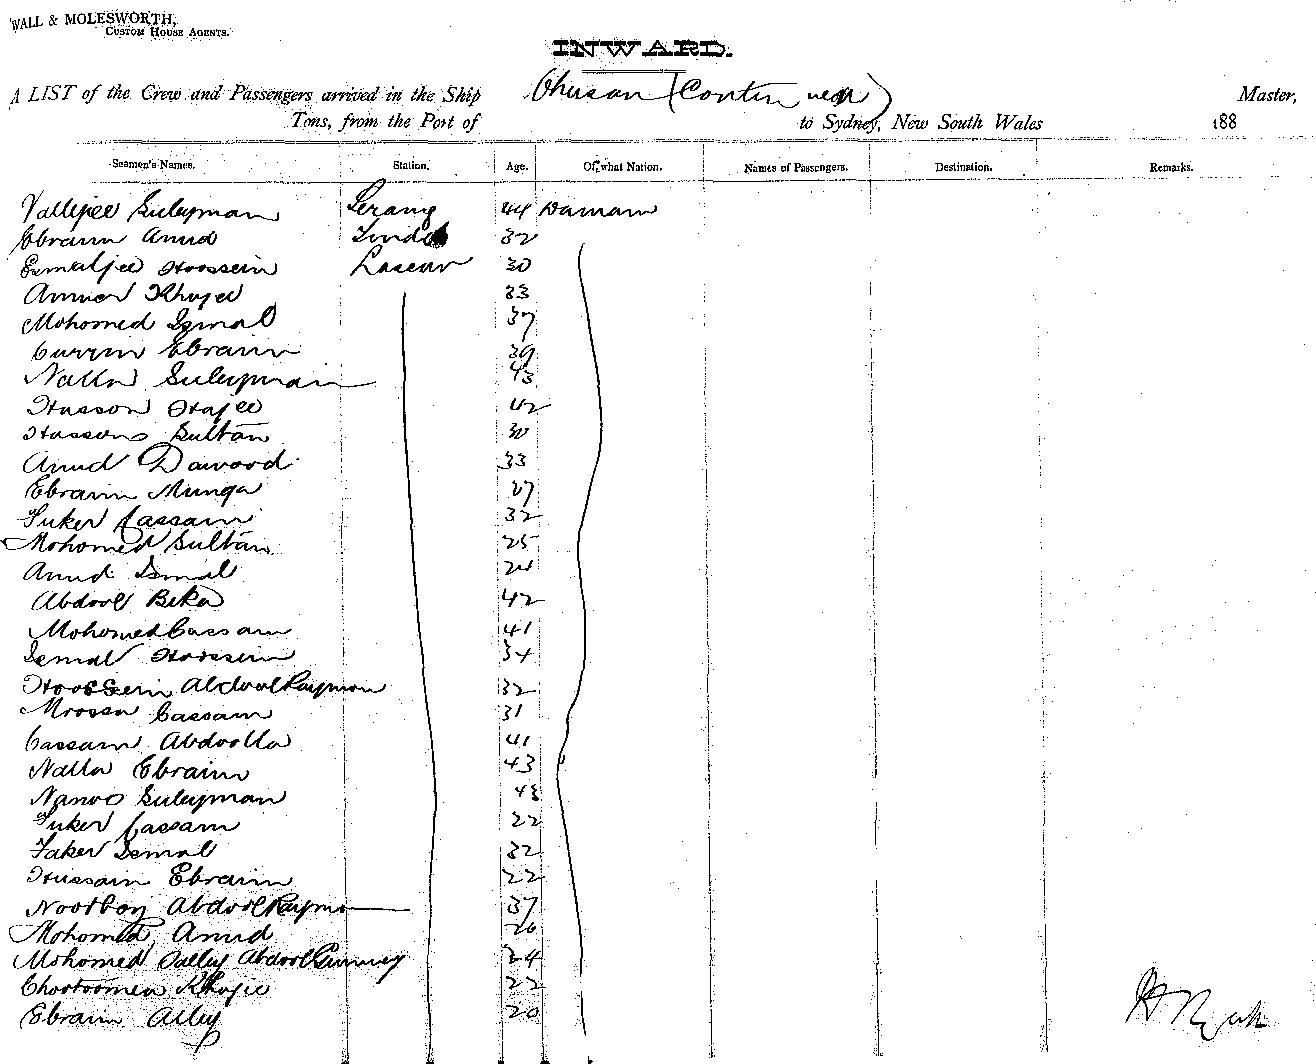 WALL & MOLESWORTH,
CUSTOM HOUSE AGENTS.
INWARD.
A LIST of the Crew and Passengers arrived in the Ship Chusan (Continued) Master,
Tons, from the Port of to Sydney, New South Wales 188
Seamen's Names. Station. Age. Of what Nation. Names of Passengers. Destination. Remarks.
Vallejee Suleyman Serang 44 Damam
Ebraim Amid Tindal 32
Esmaljee Hoossein Lascar 30
Khajee 33
Mohomed Ismal 37
Currim Ebraim 39
Nalla Suleyman 43
Hasson Hajee 42
Hassons Sultan 30
Amid Dawood 33
Ebraim Munga 27
Fuker Cassam 32
Mohomed Sultan 25
Amid Ismal 24
Abdool Beka 42
Mohomed Cassam 41
Ismal Hoossein 34
Hoossein Abdool Raymon 32
Moossa Cassam 31
Cassam Abdoolla 41
Nalla Ebraim 43
Nanoo Suleyman 43
Fuker Cassam 22
Faker Ismal 32
Hussain Ebraim 22
Noorboy Abdool Raymo 37
Mohomed Amid 26
Mohomed Salley Abdool Gunney 24
Khajee 22
Ebraim Alley 20